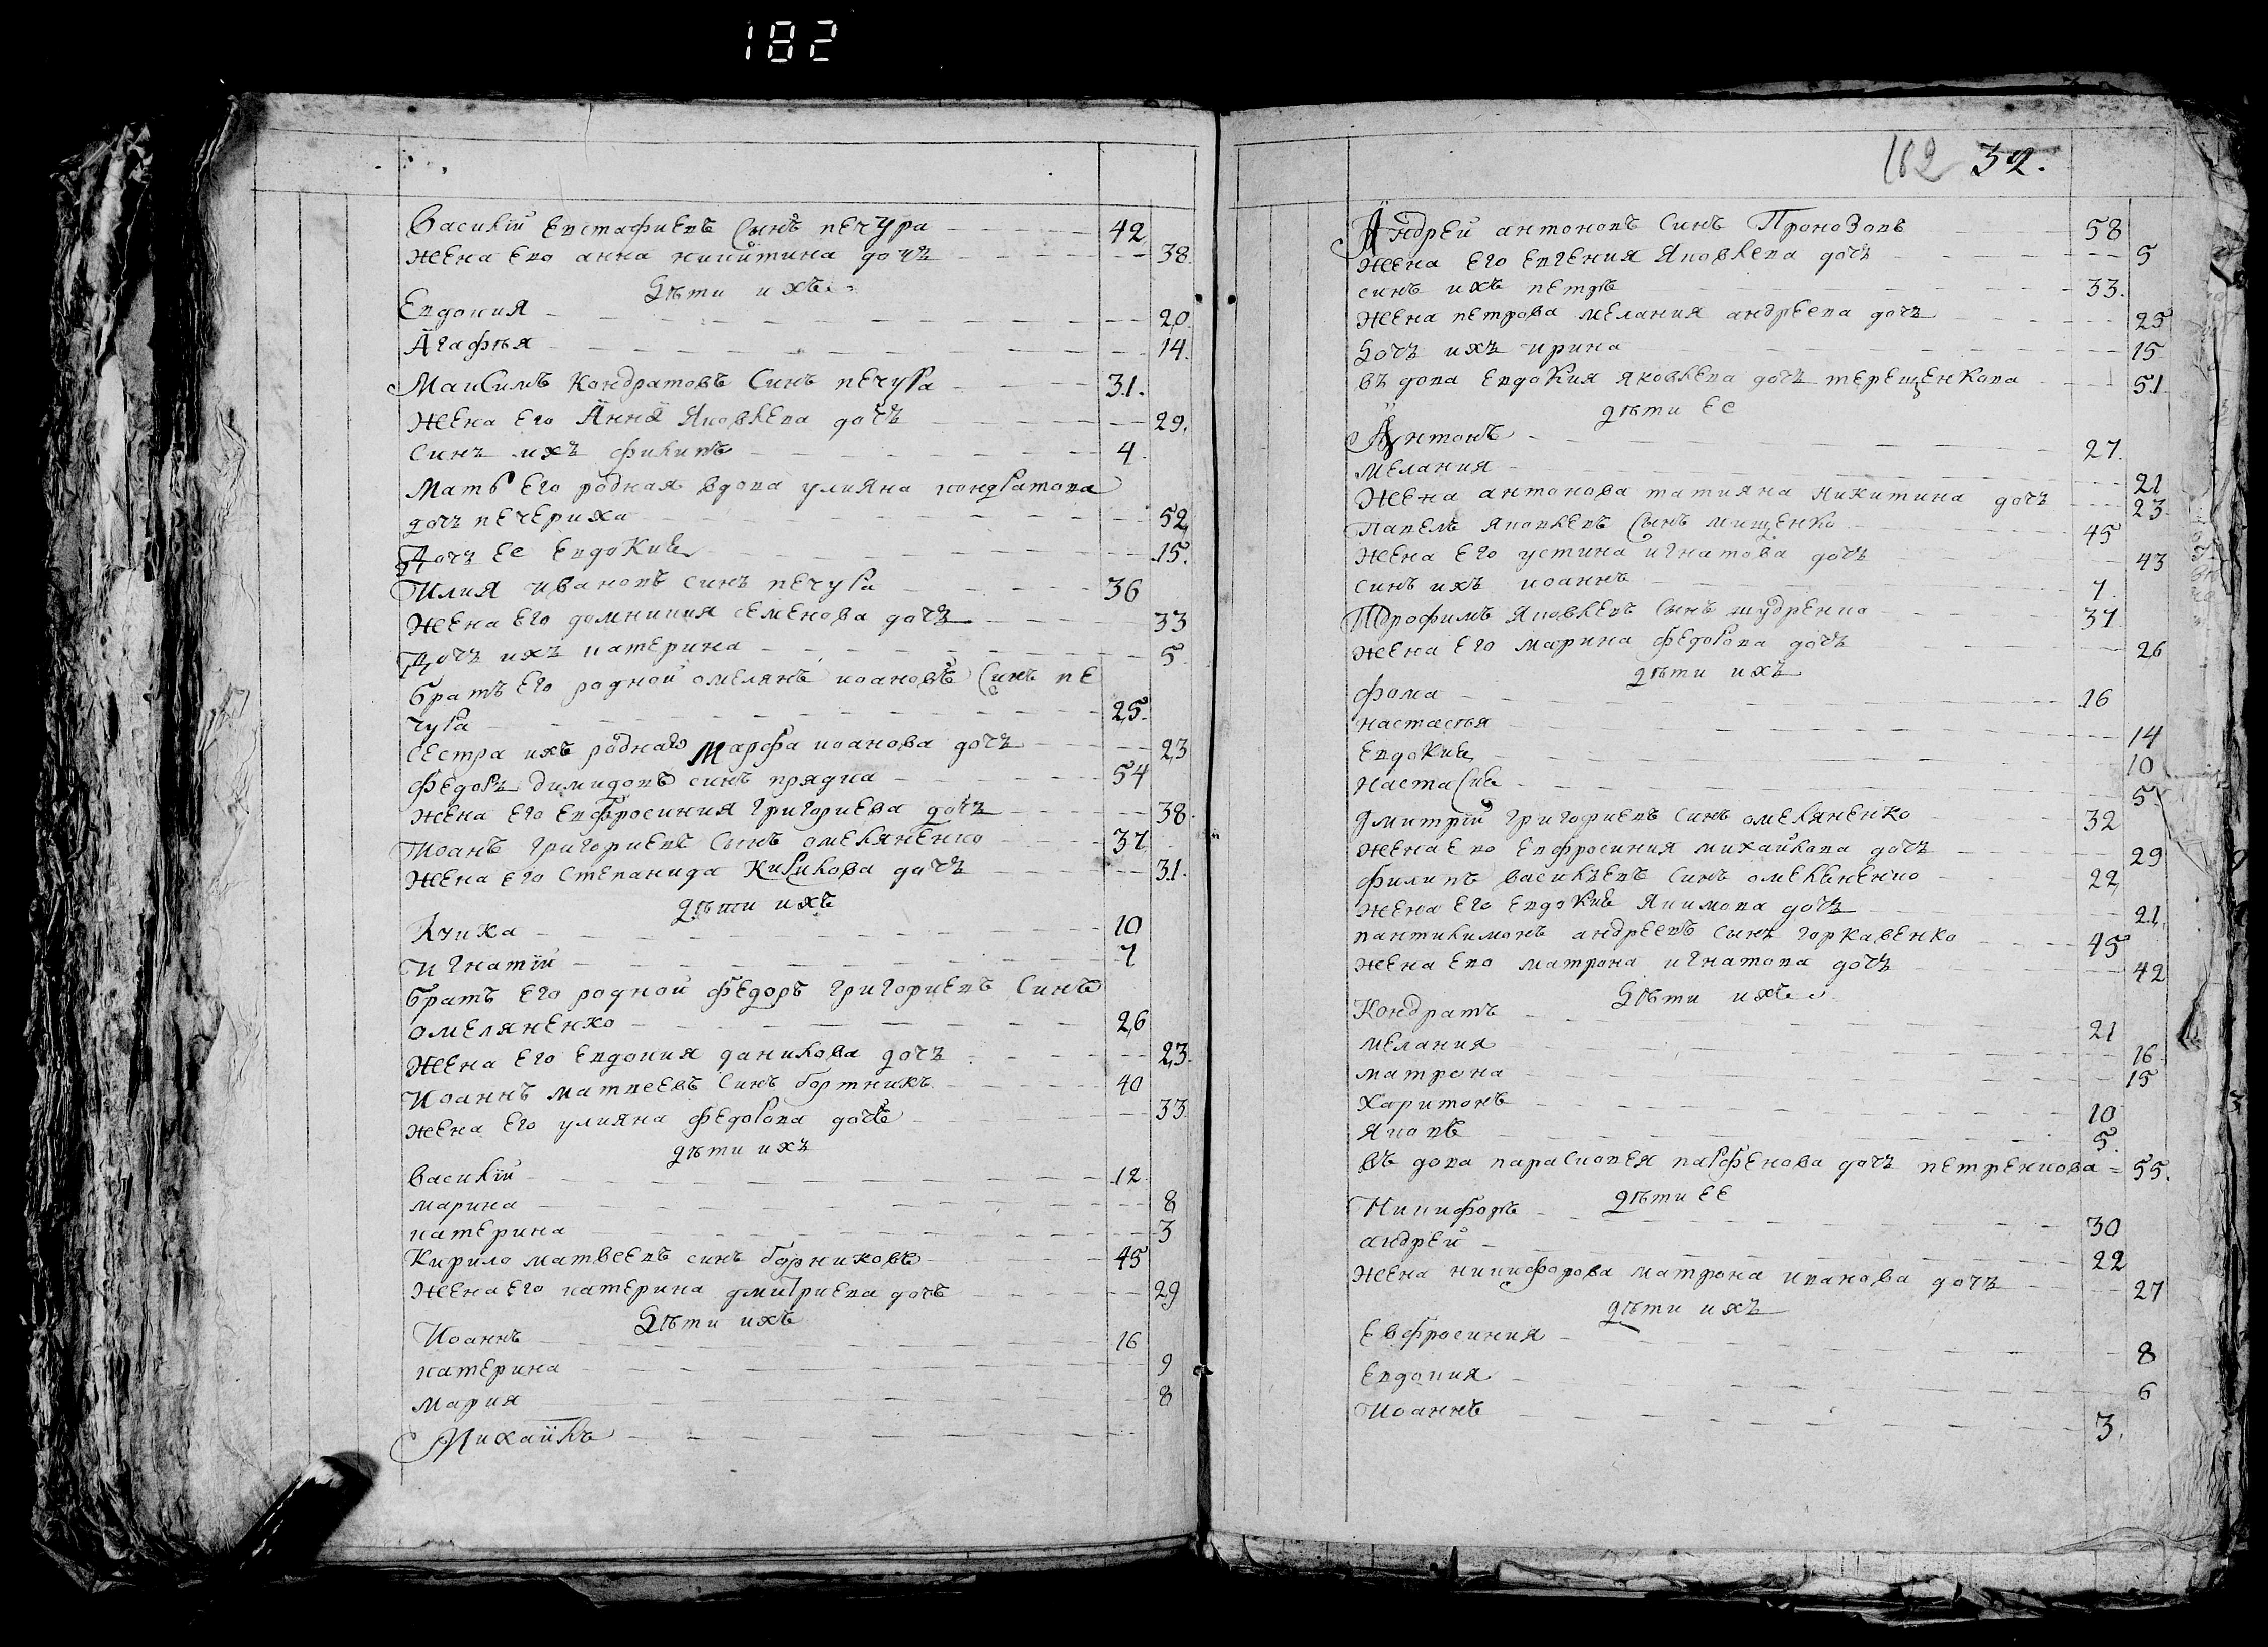 182
Василий Евстафиевъ Сынъ печура 42
жена его анна никитина дочъ 38
дѣти ихъ
Евдокия 20
Агафѣя 14
Максимъ Кондратовъ Синъ печура 31
жена его Анна Яковлева дочъ 29
синъ ихъ филипъ 4
Мать его родная вдова улияна кондратова
дочъ печериха 52
Дочъ ее Евдокия 15
Илия ивановъ синъ печура 36
жена его домникия семенова дочъ 33
Дочъ ихъ катерина 5
братъ его родной омелянъ иоановъ Синъ пе
чура 25
сестра ихъ родная Марфа иоанова дочъ 23
федоръ димидовъ синъ прядка 54
жена его евфросиния григориева дочъ 38
Иоанъ григориевъ Сынъ омеляненко 37
жена его степанида Кирилова дочъ 31
дѣти ихъ
Лзика 10
Игнатий 7
братъ его родной федоръ григориевъ Синъ
омеляненко 26
жена его евдокия данилова дочъ 23
Иоаннъ матвеевъ Синъ бортникъ 40
жена его улияна федорова дочъ 33
дѣти ихъ
василий 12
марина 8
катерина 3
Кирило матвеевъ синъ борниковъ 45
жена его катерина дмитриева дочъ 29
дѣти ихъ
Иоаннъ 16
катерина 9
мария 8
Михайлъ
162 32.
Андрей антоновъ Синъ Пронозовъ 58
жена его евгения Яковлева дочъ 5
синъ ихъ петръ 33
жена петрова мелания андреева дочъ 25
дочъ ихъ ирина 15
въ дова евдокия яковлева дочъ терещенкова 51
дѣти ее
Антонъ 27
мелания 21
жена антонова татияна никитина дочъ 23
Павелъ яковлевъ Сынъ мищенко 45
жена его устина игнатова дочъ 43
синъ ихъ иоаннъ 7
Трофимъ Яковлевъ Сынъ шудренко 37
жена его марина федорова дочъ 26
дѣти ихъ
фома 16
настасъя 14
евдокия 10
настасия 5
дмитрий григориевъ Синъ омеляненко 32
жена его евфросиния михайлова дочъ 29
филипъ василъевъ Синъ омеляненко 22
жена его евдокия якимова дочъ 21
пантилимонъ андреевъ Сынъ горкавенко 45
жена его матрона игнатова дочъ 42
дѣти ихъ
Кондратъ 21
мелания 16
матрона 15
харитонъ 10
яковъ 5
въ дова парасковея парфенова дочъ петренкова 55
дѣти ее
Никифоръ 30
андрей 22
жена никифорова матрона иванова дочъ 27
дѣти ихъ
Евфросиния 8
евдокия 6
Иоаннъ 3